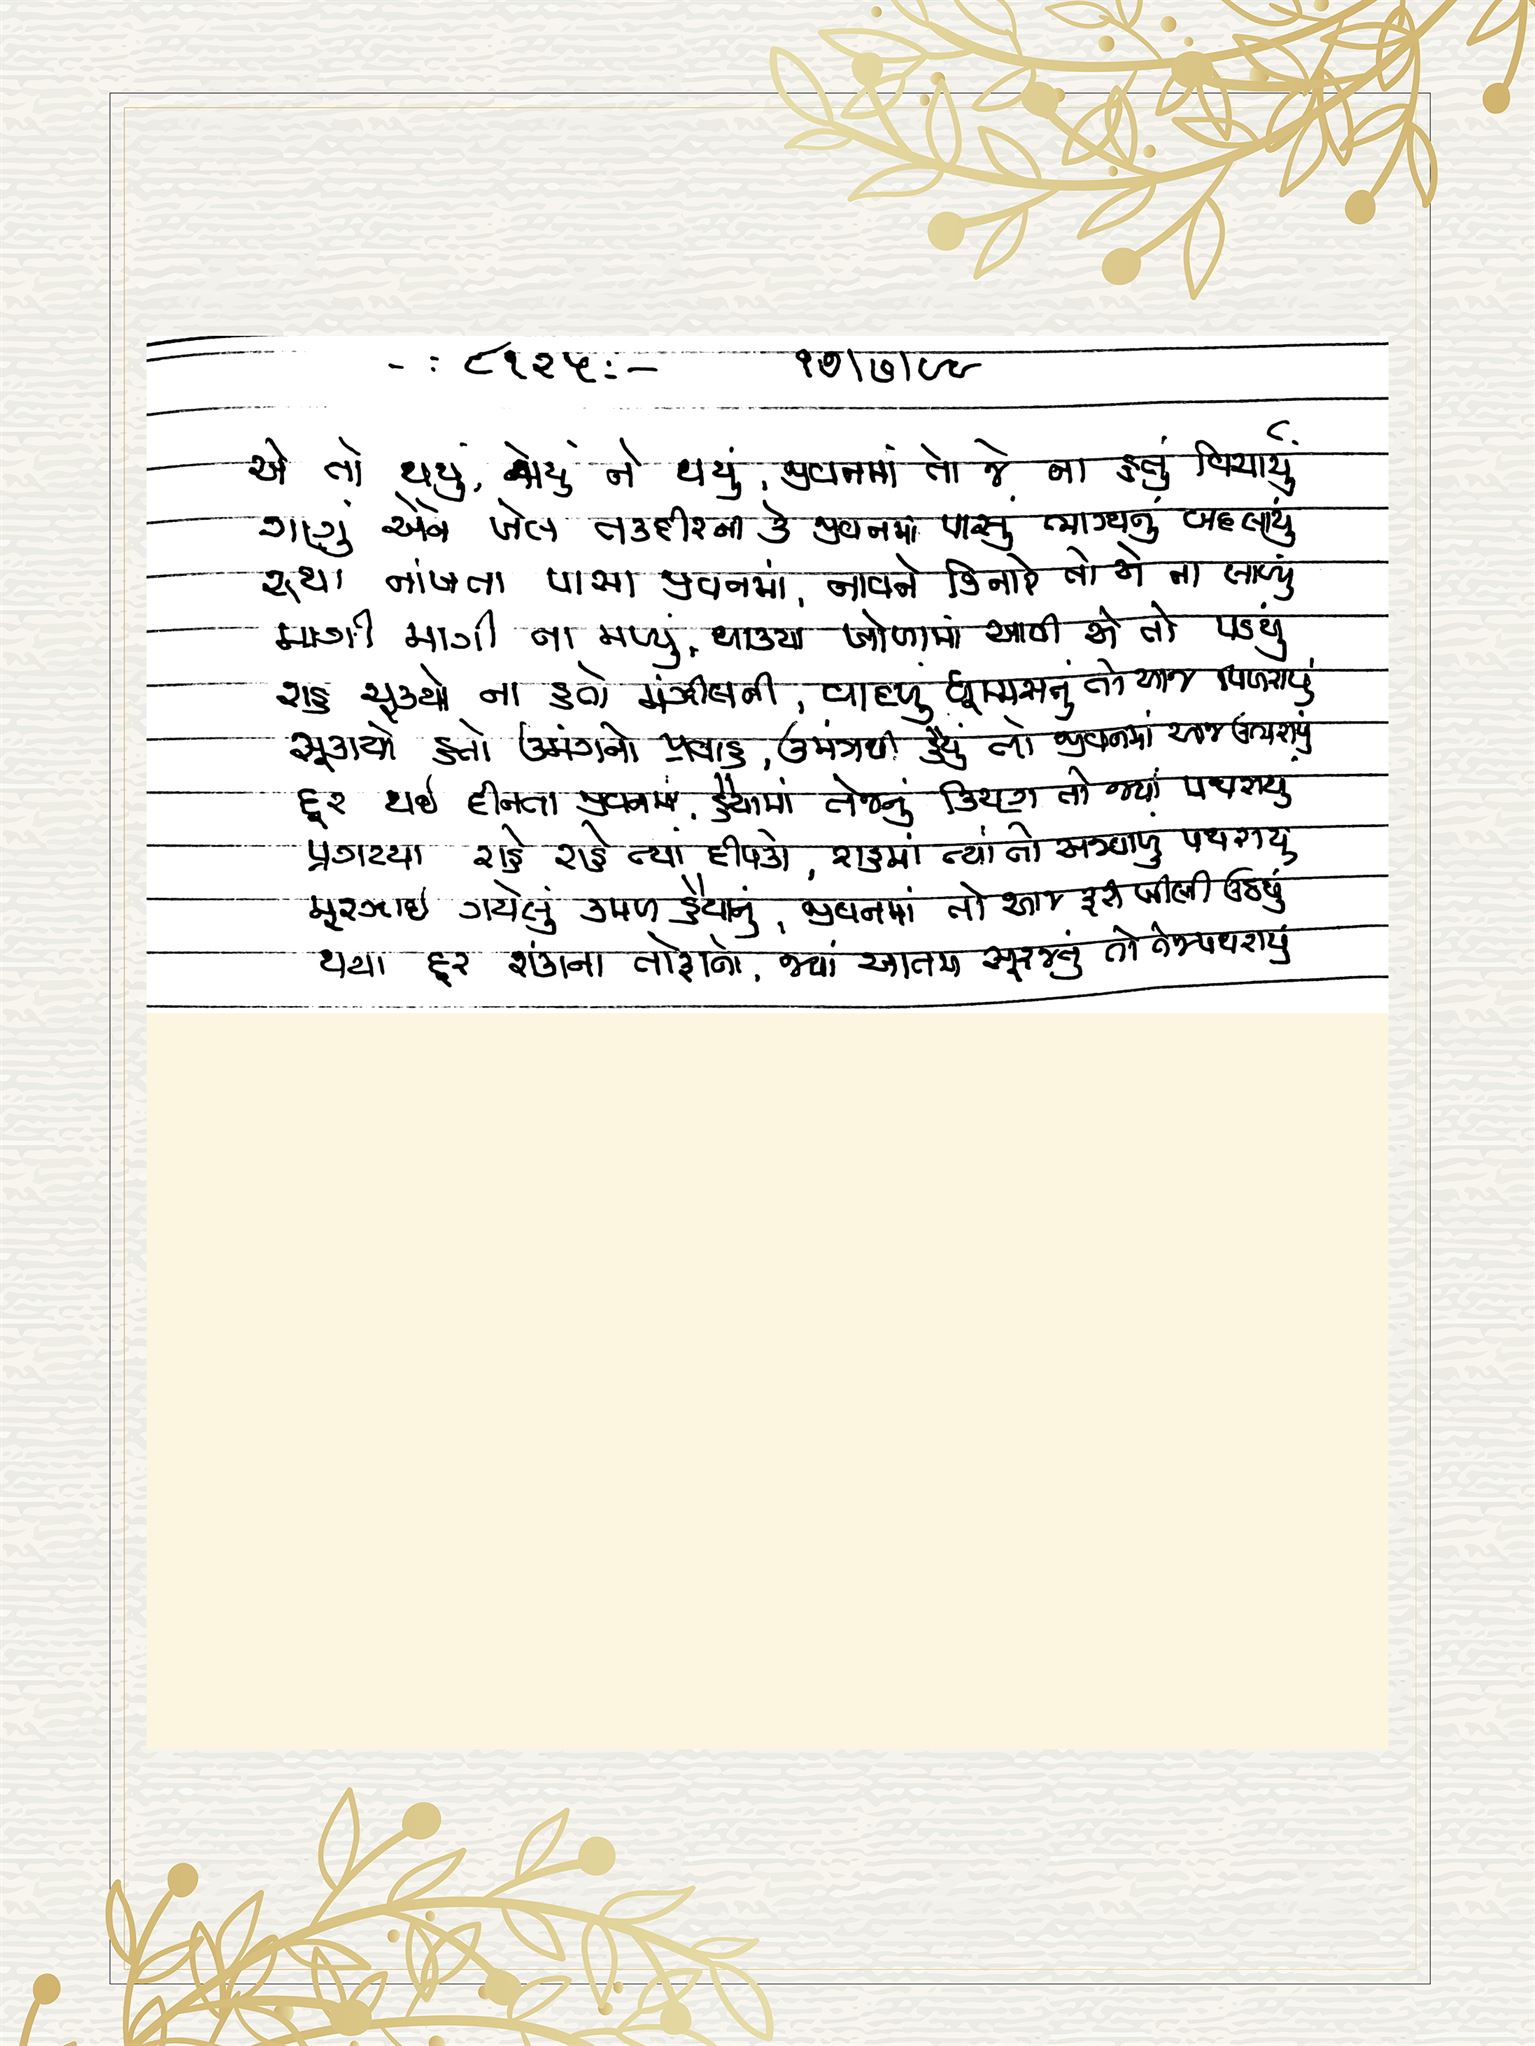 - : ૮૧૨૫ : - ૧૭/૭/૯૯
એ તો થયું, થયું ને થયું, જીવનમાં તો જે ના હતું વિચાર્યું
ગણું એને ખેલ તકદીરના કે જીવનમાં પાસું ભાગ્યનું બદલાયું
રહ્યા નાંખતા પાસા જીવનમાં, નાવને કિનારે તો એ ના લાવ્યું
માગી માગી ના મળ્યું, થાક્યા ખોળામાં આવી એ તો પડયું
રાહ સૂઝયો ના હતો મંઝીલની, વાદળું ધૂમ્મસનું તો આજ વિખરાયું
સૂકાયો હતો ઉમંગનો પ્રવાહ, ઉમંગથી હૈયું તો જીવનમાં આજ ઉભરાયું
દૂર થઈ દીનતા જીવનમાં, હૈયામાં તેજનું કિરણ તો જ્યાં પથરાયું
પ્રગટયા રાહે રાહે ત્યાં દીપકો, રાહમાં ત્યાં તો અજવાળું પથરાયું
મૂરઝાઈ ગયેલું કમળ હૈયાનું, જીવનમાં તો આજ ફરી ખીલી ઉઠયું
થયા દૂર શંકાના તોફાનો, જ્યાં આતમ સૂરજનું તો તેજ પથરાયું